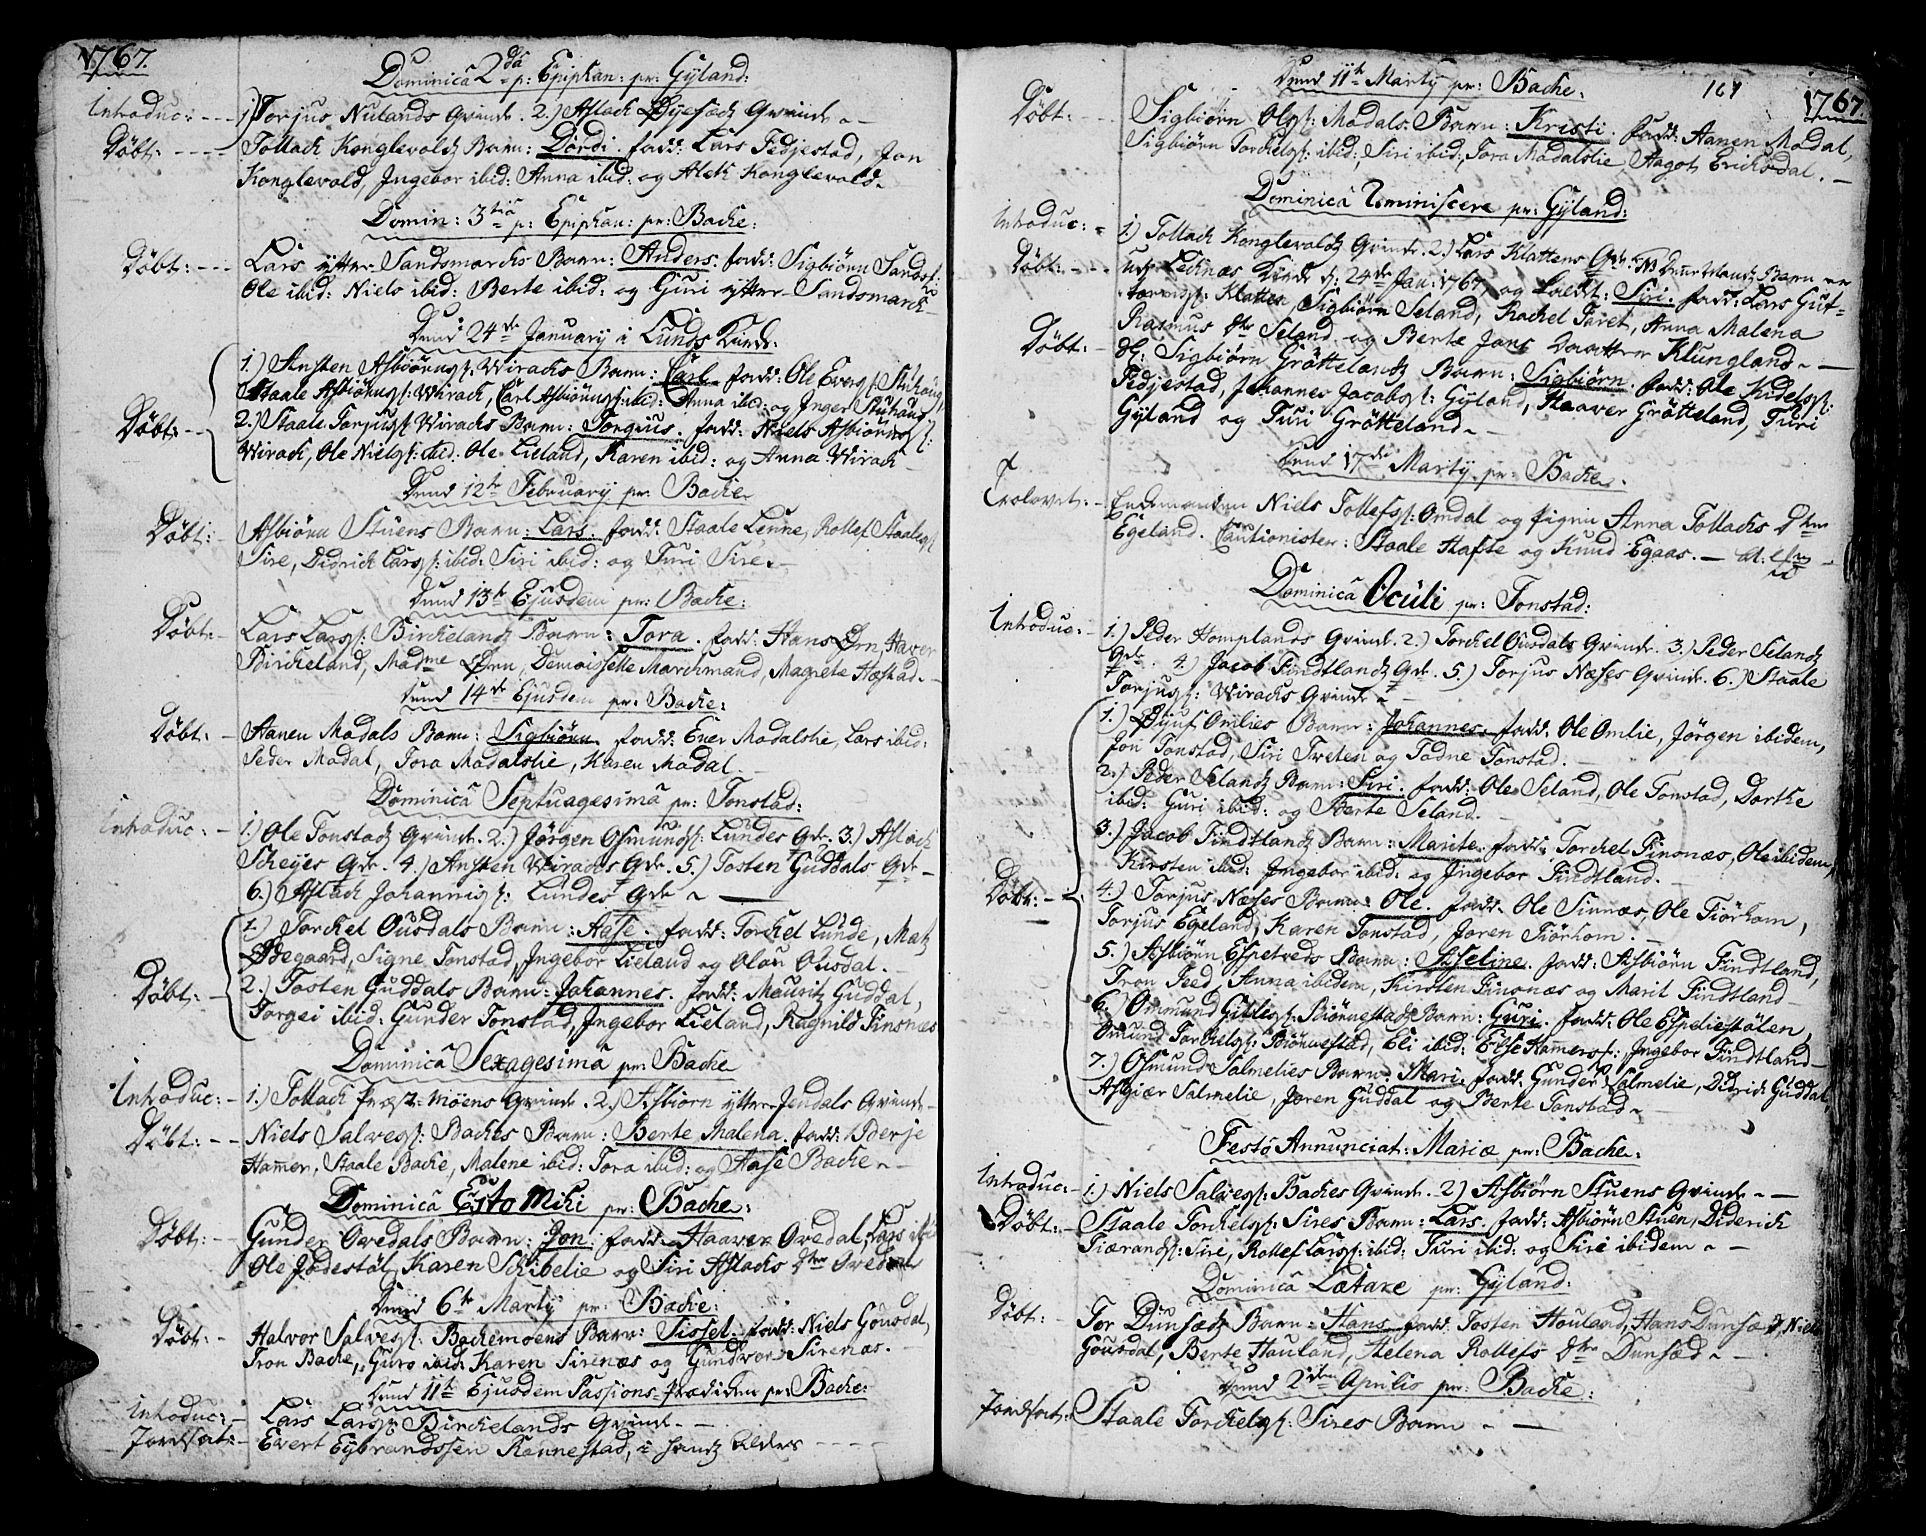 1767.
Dominicâ 2da p: Epiphan: pr: Gyland:
Introduc: - - - 1) Torjus Nulands Qvinde. 2.) Aslach Qvinde. -
Døbt: - - - - Tollach Konglevolds Barn: Dordi. fadd: Lars Fedjestad, Jon
Konglevold, Ingebor ibid: Anna ibid: og Aleth Konglevold.
Domin: 3tiâ p: Epiphan: pr: Backe:
Døbt: - - - Lars ytter-Sandsmarchs Barn: Anders. fadd: Sigbiörn Sandsm:
Ole ibid: Niels ibid: Berte ibid: og Guri ytter-Sandsmarch.
Dend 24de January i Lunds Kirche:
1.) Ansten Asbiörns: Wirachs Barn: Carl. fadd: Ole Evens: Stuhoug,
Staale Asbiörns: Wirach, Carl Asbiörns: ibid: Anna ibid: og Inger Stuhoug
Døbt: - - 2.) Staale Torjus: Wirachs Barn: Torgius. fadd: Niels Asbiörns:
Wirach, Ole Niels: ibid: Ole Lieland, Karen ibid: og Anna Wirach
Dend 12te February pr: Backe
Døbt: - Asbiörn Stuens Barn: Lars. fadd: Staale Lenne, Rollef Staales:
Sire, Didrich Lars: ibid: Siri ibid: og Turi Sire. -
Dend 13de Ejusdem pr: Backe:
Døbt: - Lars Lars: Birchelands Barn: Tora. fadd: Hans Örn, Haver
Birckeland, Madme Örn, Demoiselle Marchmand, Magrete Hestad. -
Dend 14de Ejusdem pr: Backe:
Døbt: - Aanen Modals Barn: Sigbiörn. fadd: Ener Modalslie, Lars ibid:
Peder Modal, Tora Modalslie, Karen Modal
Dominicâ Septuagesimâ pr: Tonstad:
Introduc: - 1.) Ole Tonstads Qvinde. 2.) Jörgen Osmunds: Lundes Qde. 3.) Aslach
Scheyes Qde. 4.) Ansten Wirachs Qde. 5.) Tosten Guddals Qde -
6.) Aslach Johannis: Lundes Qde -
1.) Torchel Ousdals Barn: Aase. fadd: Torchel Lunde, Mats
Ödegaard, Signe Tonstad, Ingebor Lieland og Olou Ousdal.
Døbt: - 2.) Tosten Guddals Barn: Johannes. fadd: Mauritz Guddal,
Torgei ibid: Gunder Tonstad, Ingebor Lieland, Ragnild Finsnæs
Dominicâ Sexagesimâ pr: Backe
Introduc: - 1.) Tollach Præste-Moens Qvinde. 2.) Asbiörn ytter-Jendals Qvinde -
Døbt: - - Niels Salves: Backes Barn: Berte Malena. fadd: Berje
Hamer, Staale Backe, Malene ibid: Tora ibid: og Aase Backe. -
Dominicâ Esto Mihi pr: Backe:
Døbt: - Gunder Ovedals Barn: Jon. fadd: Haaver Ovedal, Lars ibid:
Ole Jödestöl, Karen Schibelie og Siri Aslachs Dtr Ovedal
Dend 6te Marty pr: Backe:
Døbt: - Halvor Salves: Backemoens Barn: Sissel. fadd: Niels Gousdal,
Tron Backe, Guro ibid: Karen Sirenæs og Gundvor Sirenæs.
Dend 11te Ejusdem Passions-Prædiken pr: Backe:
Introduc: - Lars Lars: Birckelands Qvinde. -
Jordfæt: - Evert Eybrandssen Rannestad, i hans Alders - - - -
167 1767.
Dend 11te Marty pr: Backe:
Døbt: - - - Sigbiörn Ols: Modals Barn: Kristi. fadd: Aanen Modal,
Sigbiörn Torchels: ibid: Siri ibid: Tora Modalslie, Aagot Ericksdal. -
Dominicâ Reminiscere pr: Gyland:
Introduc: - 1.) Tollach Konglevolds Qvinde. 2.) Lars Klattens Qde.
Døbt: - - - udi Lecknæs Kirche d: 24de Jan: 1767, og kaldt: Siri. fadd: Lars Gut-
torms: Klatten, Sigbiörn Seland, Rachel Taret, Anna Malena
Rasmus Dtr Seland og Berte Jons Daatter Klungland. -
Døbt: - d: Sigbiörn Gröttelands Barn: Sigbiörn. fadd: Ole Kidels:
Fedjestad, Johannes Jacobs: Gyland, Haaver Grötteland, Turi
Gyland og Turi Grötteland. -
Dend 17de Marty pr: Backe.
Trolovet: - Enchemanden Niels Tollefs: Omdal og Pigen Anna Tollachs Dtr
Egeland. Cautionister: Staale Hafte og Knud Egaas. -
Dominicâ Oculi pr: Tonstad:
Introduc: - 1.) Peder Homplands Qvinde. 2.) Torchel Ousdals Qvinde. 3.) Peder Selands
Qde. 4.) Jacob Findtlands Qde. 5.) Torjus Næses Qvinde. 6.) Staale
Torjus: Wirachs Qvinde. -
1.) Omlies Barn: Johannes. fadd: Ole Omlie, Jörgen ibidem,
Jon Tonstad, Siri Treten og Tadne Tonstad. -
2.) Peder Selands Barn: Siri. fadd: Ole Seland, Ole Tonstad, Dorthe
ibid: Guri ibid: og Berte Seland.
3.) Jacob Findtlands Barn: Marite. fadd: Torchel Finsnæs, Ole ibidem,
Kirsten ibid: Ingebor ibid: og Ingebor Findtland.
Døbt: - 4.) Torjus Næses Barn: Ole. fadd: Ole Sinnæs, Ole Tiörhom,
Torjus Egeland, Karen Tonstad, Joren Tiörhom. -
5.) Asbiörn Espetveds Barn: Asseline. fadd: Asbiörn Findtland,
Tron Feed, Anna ibidem, Kirsten Finsnæs og Marit Findtland
6.) Ommund Gitlis: Biönnestads Barn: Guri. fadd: Ole Espeliestölen,
Omund Torkels: Biönnestad, Eli ibid: Else Hamers: Ingebor Findtland
7.) Osmund Salmelies Barn: Mari. fadd: Gunder Salmelie, Didrich Guddal,
Asgiær Salmelie, Joren Guddal og Berte Tonstad. -
Festo Annunciat: Mariæ pr: Backe:
Introduc: - 1.) Niels Salves: Backes Qvinde. 2.) Asbiörn Stuens Qvinde. -
Døbt: - Staale Torchels: Sires Barn: Lars. fadd: Asbiörn Stuen, Diderich
Tiærands: Sire, Rollef Lars: ibid: Turi ibid: og Siri ibidem. -
Dominicâ Lætare pr: Gyland:
Døbt: - Tor Dunsæds Barn: Hans. fadd: Tosten Houland, Hans Dunsæd, Niels
Gousdal, Berte Hauland, Helena Rollefs Dtr Dunsæd. -
Dend 2den Aprilis pr: Backe:
Jordfæt: - Staale Torchels: Sires Barn - -